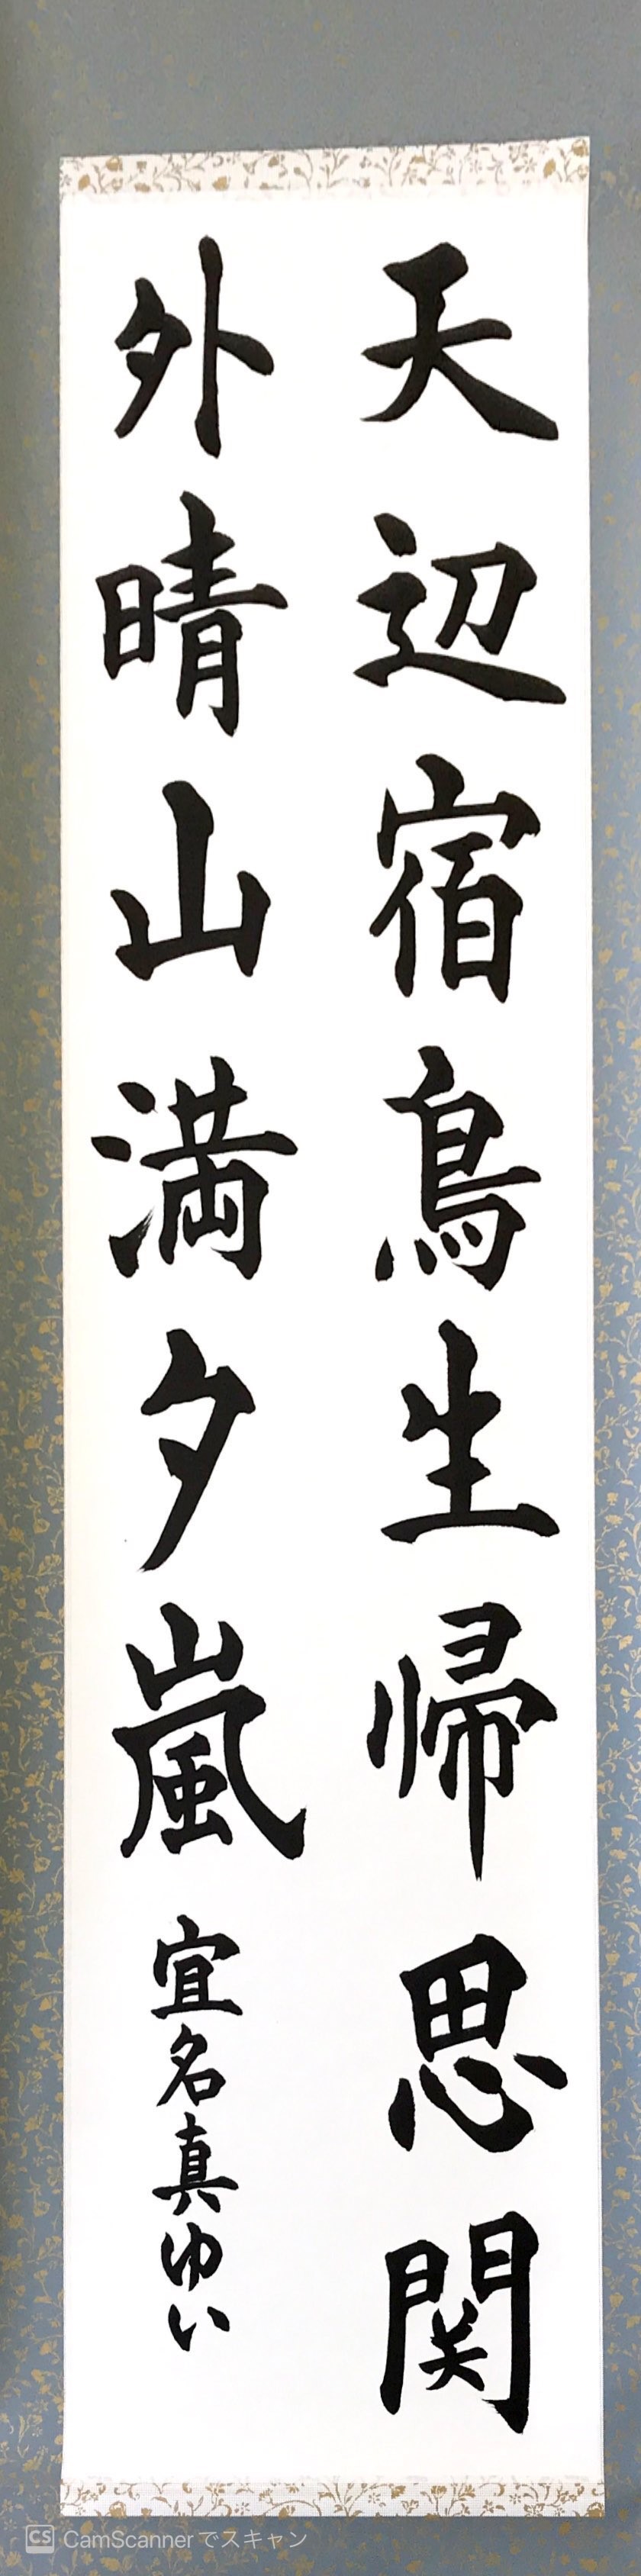 天辺宿鳥生帰思関
外晴山満夕嵐
宜名真ゆい
CS CamScannerでスキャン